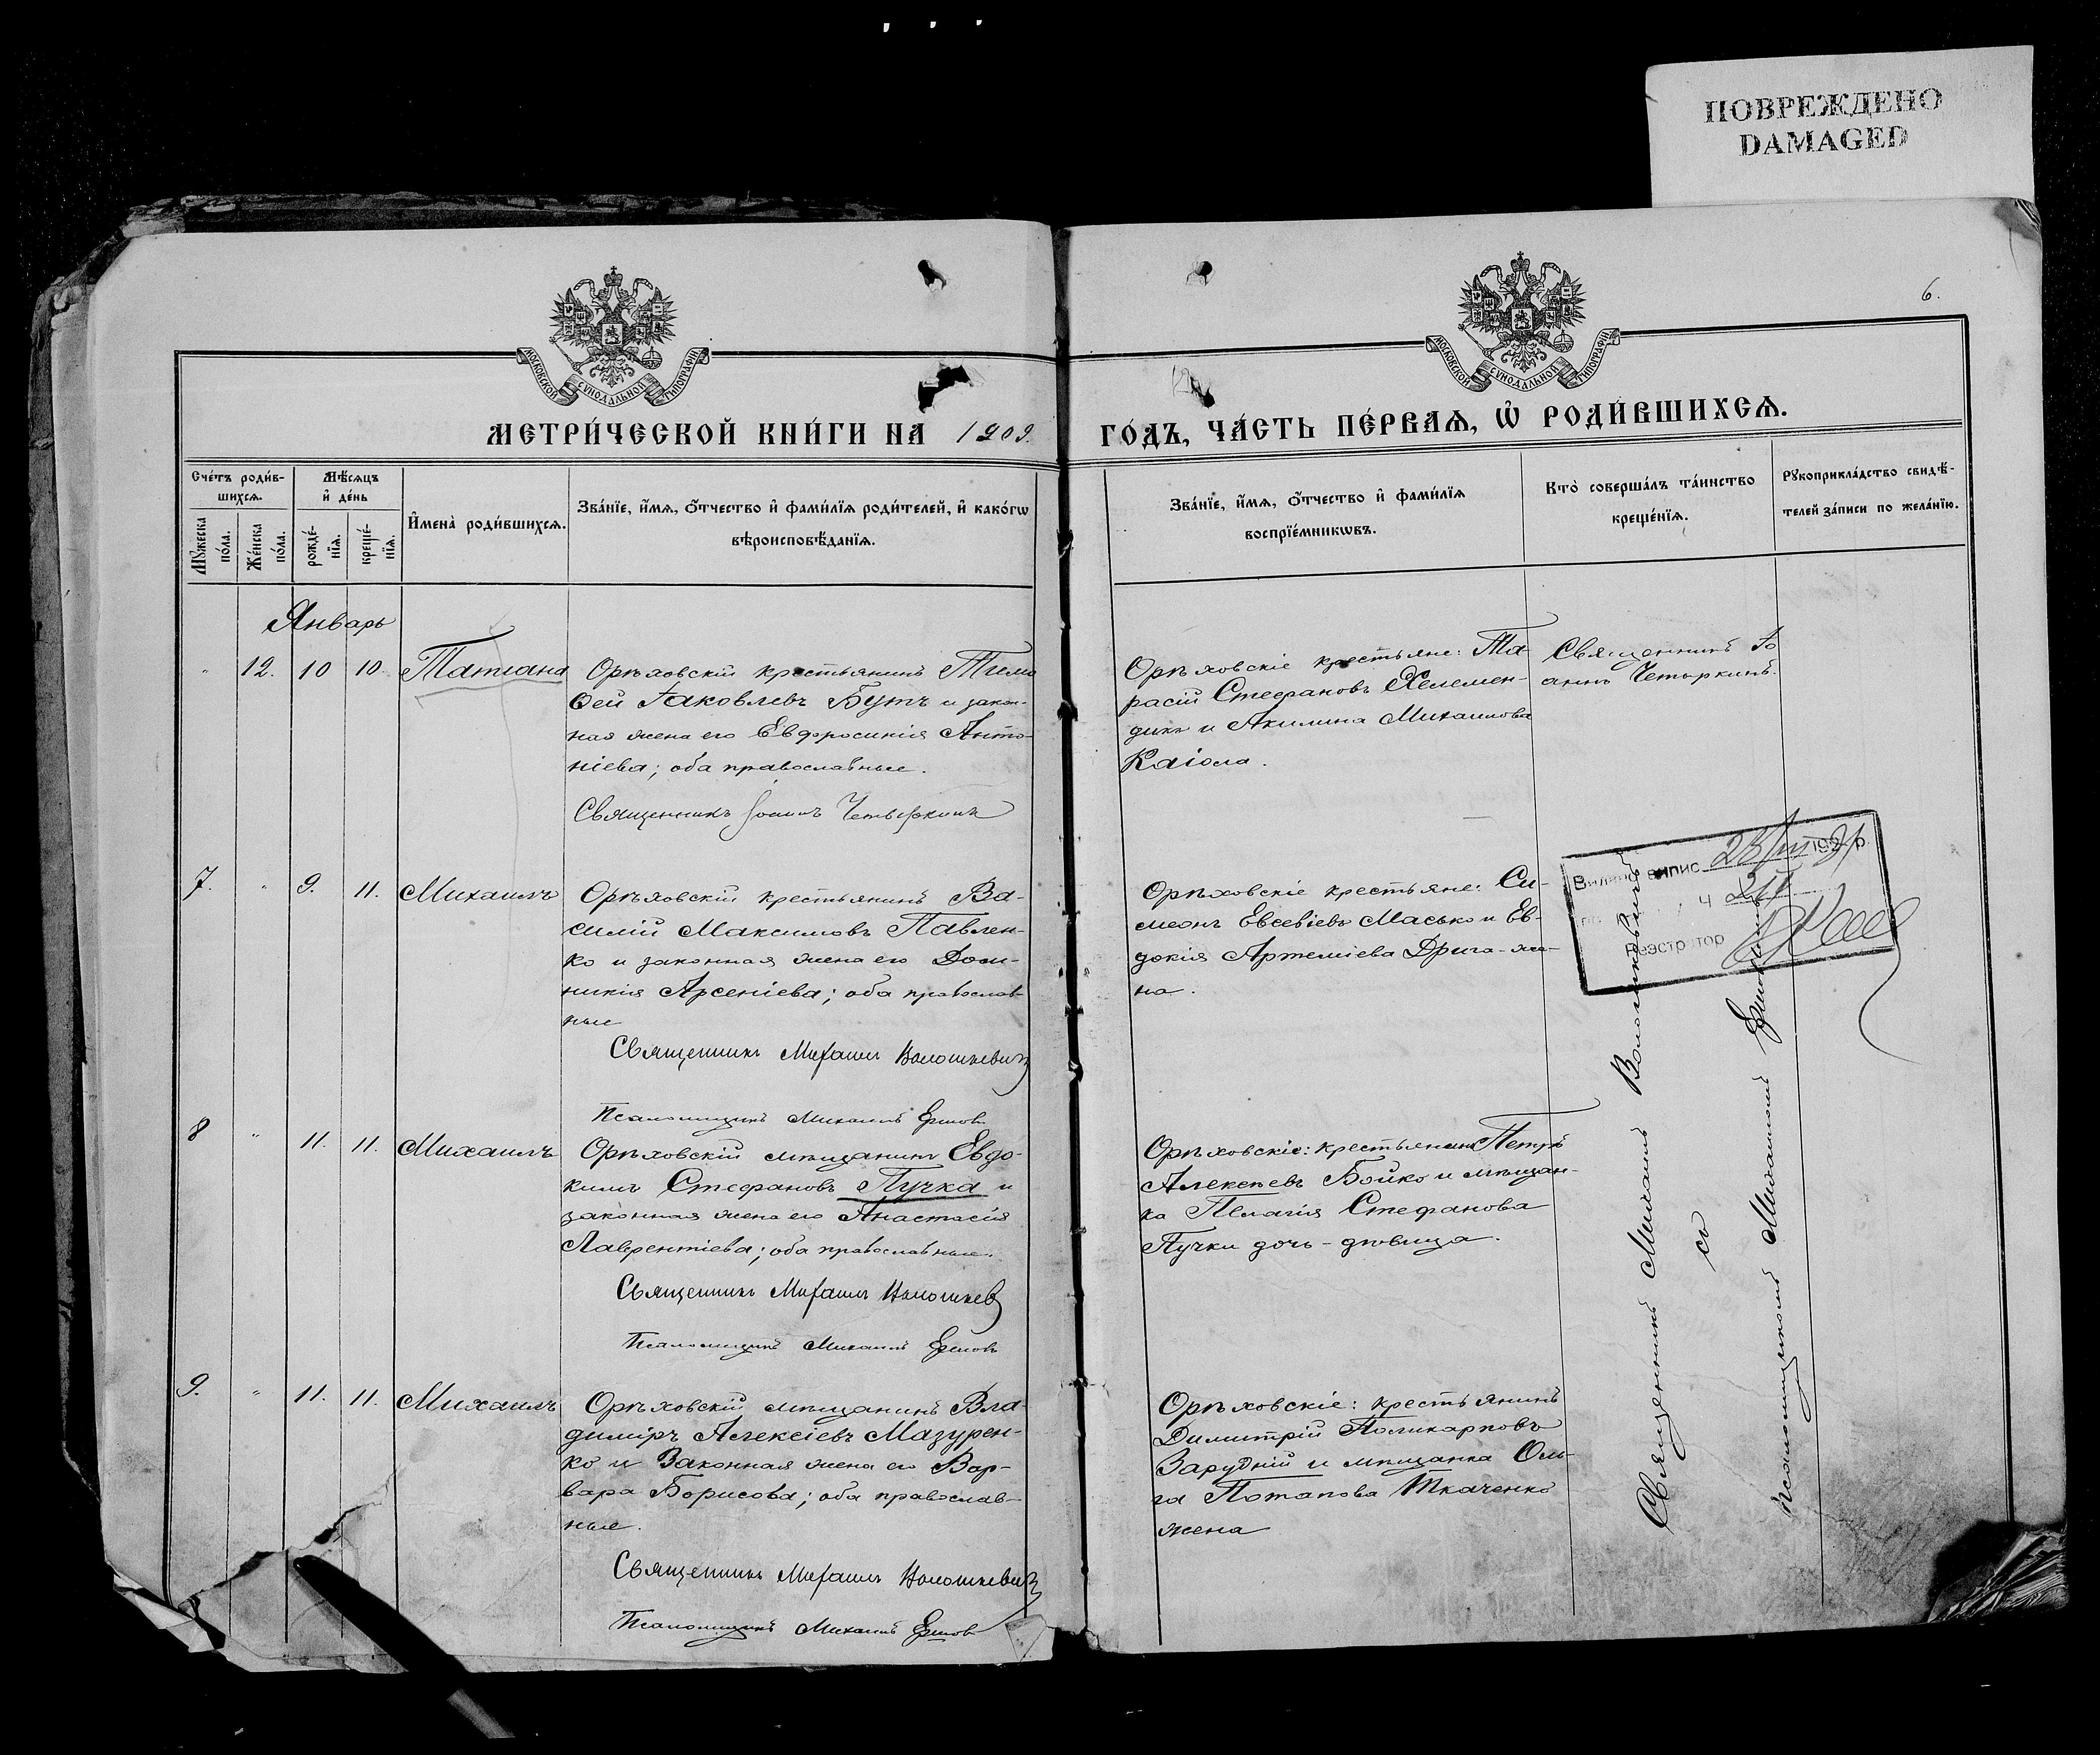 ПОВРЕЖДЕНО
DAMAGED
6.
МОСКОВСКОЙ СѴНОДАЛЬНОЙ ТИПОГРАФІИ
МОСКОВСКОЙ СѴНОДАЛЬНОЙ ТИПОГРАФІИ
МЕТРИ́ЧЕСКОЙ КНИ́ГИ НА 1909.
ГО́ДЪ, ЧА́СТЬ ПЕ́РВАѦ, Ѡ҆ РОДИ́ВШИХСѦ.
Сче́тъ роди́в-
шихсѧ.
Мѣ́сѧцъ
и҆ де́нь
Мꙋ́жеска
по́ла.
Же́нска
по́ла.
рожде́-
нїѧ.
креще́-
нїѧ.
И҆мена̀ роди́вшихсѧ.
Зва́нїе, и҆́мѧ, ѻ҆́тчество и҆ фами́лїѧ роди́телей, и҆ како́гѡ
вѣроисповѣ́данїѧ.
Зва́нїе, и҆́мѧ, ѻ҆́тчество и҆ фами́лїѧ
воспрїе́мникѡвъ.
Кто̀ соверша́лъ та́инство
креще́нїѧ.
Рꙋкоприкла́дство свидѣ́-
телей за́писи по жела́нїю.
Январь
" 12. 10 10. Татіана
Орѣховскій крестьянинъ Тимо
ѳей Іаковлевъ Бутъ и закон-
ная жена его Евфросинія Анто-
ніева; оба православные.
Священникъ Іоаннъ Четыркинъ
Орѣховскіе крестьяне: Та-
расій Стефановъ Хелемен-
дикъ и Акилина Михаилова
Каіола.
Священникъ Іо
аннъ Четыркинъ.
7. " 9. 11. Михаилъ
Орѣховскій крестьянинъ Ва-
силій Максимовъ Павлен-
ко и законная жена его Дом-
никія Арсеніева; оба православ-
ные
Священникъ Михаилъ Волошкевичъ
Псаломщикъ Михаилъ Ершовъ
Орѣховскіе крестьяне: Си-
меонъ Евсевіевъ Масько и Ев-
докія Артеміева Дрига-же-
на.
Видано випис 23/III 1921 р.
ч
Реэстратор
8 " 11. 11. Михаилъ
Орѣховскій мѣщанинъ Евдо-
кимъ Стефановъ Пучка и
законная жена его Анастасія
Лаврентіева; оба православные.
Священникъ Михаилъ Волошкев
Псаломщикъ Михаилъ Ершовъ
Орѣховскіе: крестьянинъ Петръ
Алексѣевъ Бойко и мѣщан-
ка Пелагія Стефанова
Пучки дочь-дѣвица.
9. " 11. 11. Михаилъ
Орѣховскій мѣщанинъ Вла-
диміръ Алексіевъ Мазурен-
ко и Законная жена его Вар-
вара Борисова; оба православ-
ные.
Священникъ Михаилъ Волошкевичъ
Псаломщикъ Михаилъ Ершовъ
Орѣховскіе: крестьянинъ
Димитрій Поликарповъ
Зарудній и мѣщанка Оль-
га Потапова Ткаченко
жена
Священникъ Михаилъ Волошкевичъ
съ
псаломщикомъ Михаиломъ Ершовымъ